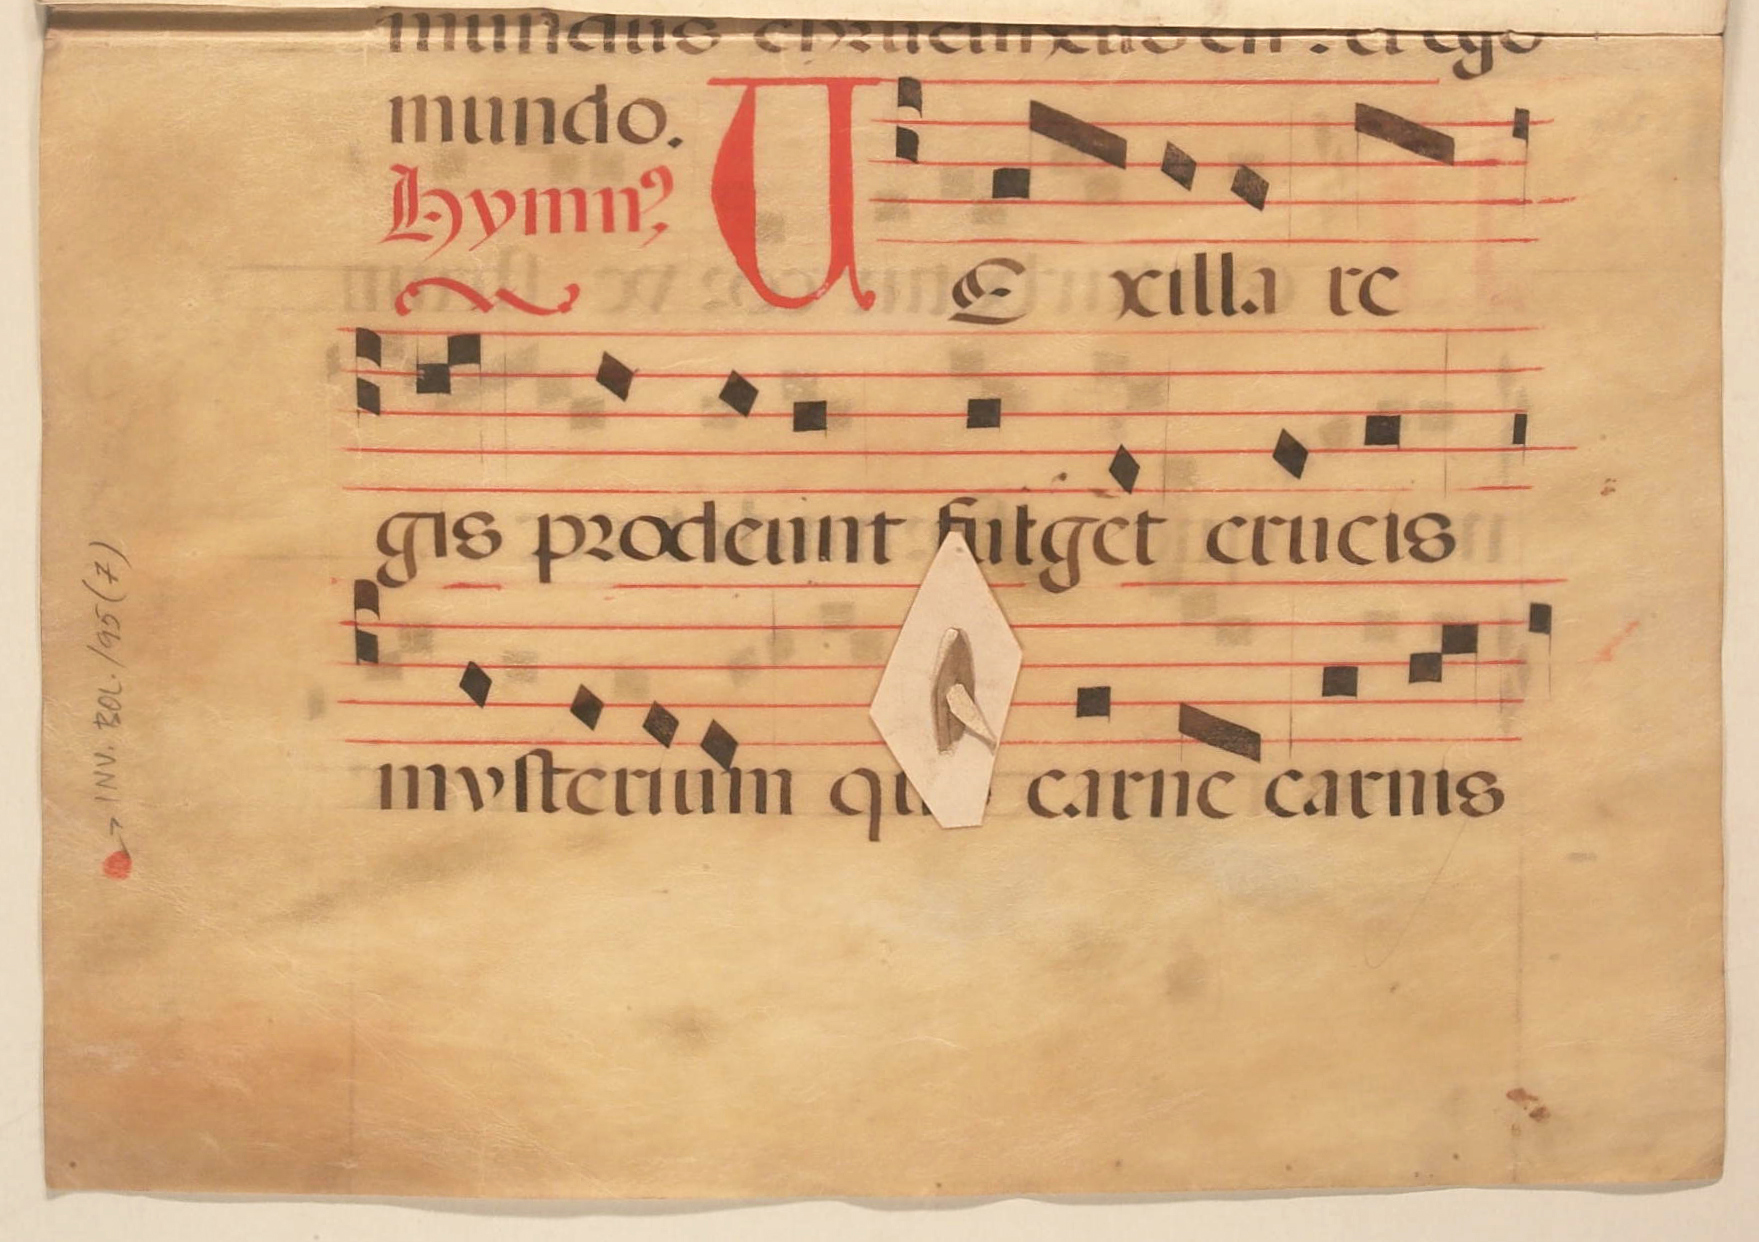 mundus crucifixus est : et ego
mundo.
Hymn⁹
VExilla re
gis prodeunt fulget crucis
mysterium carne carnis
→ INV. BOL. /95 (7)